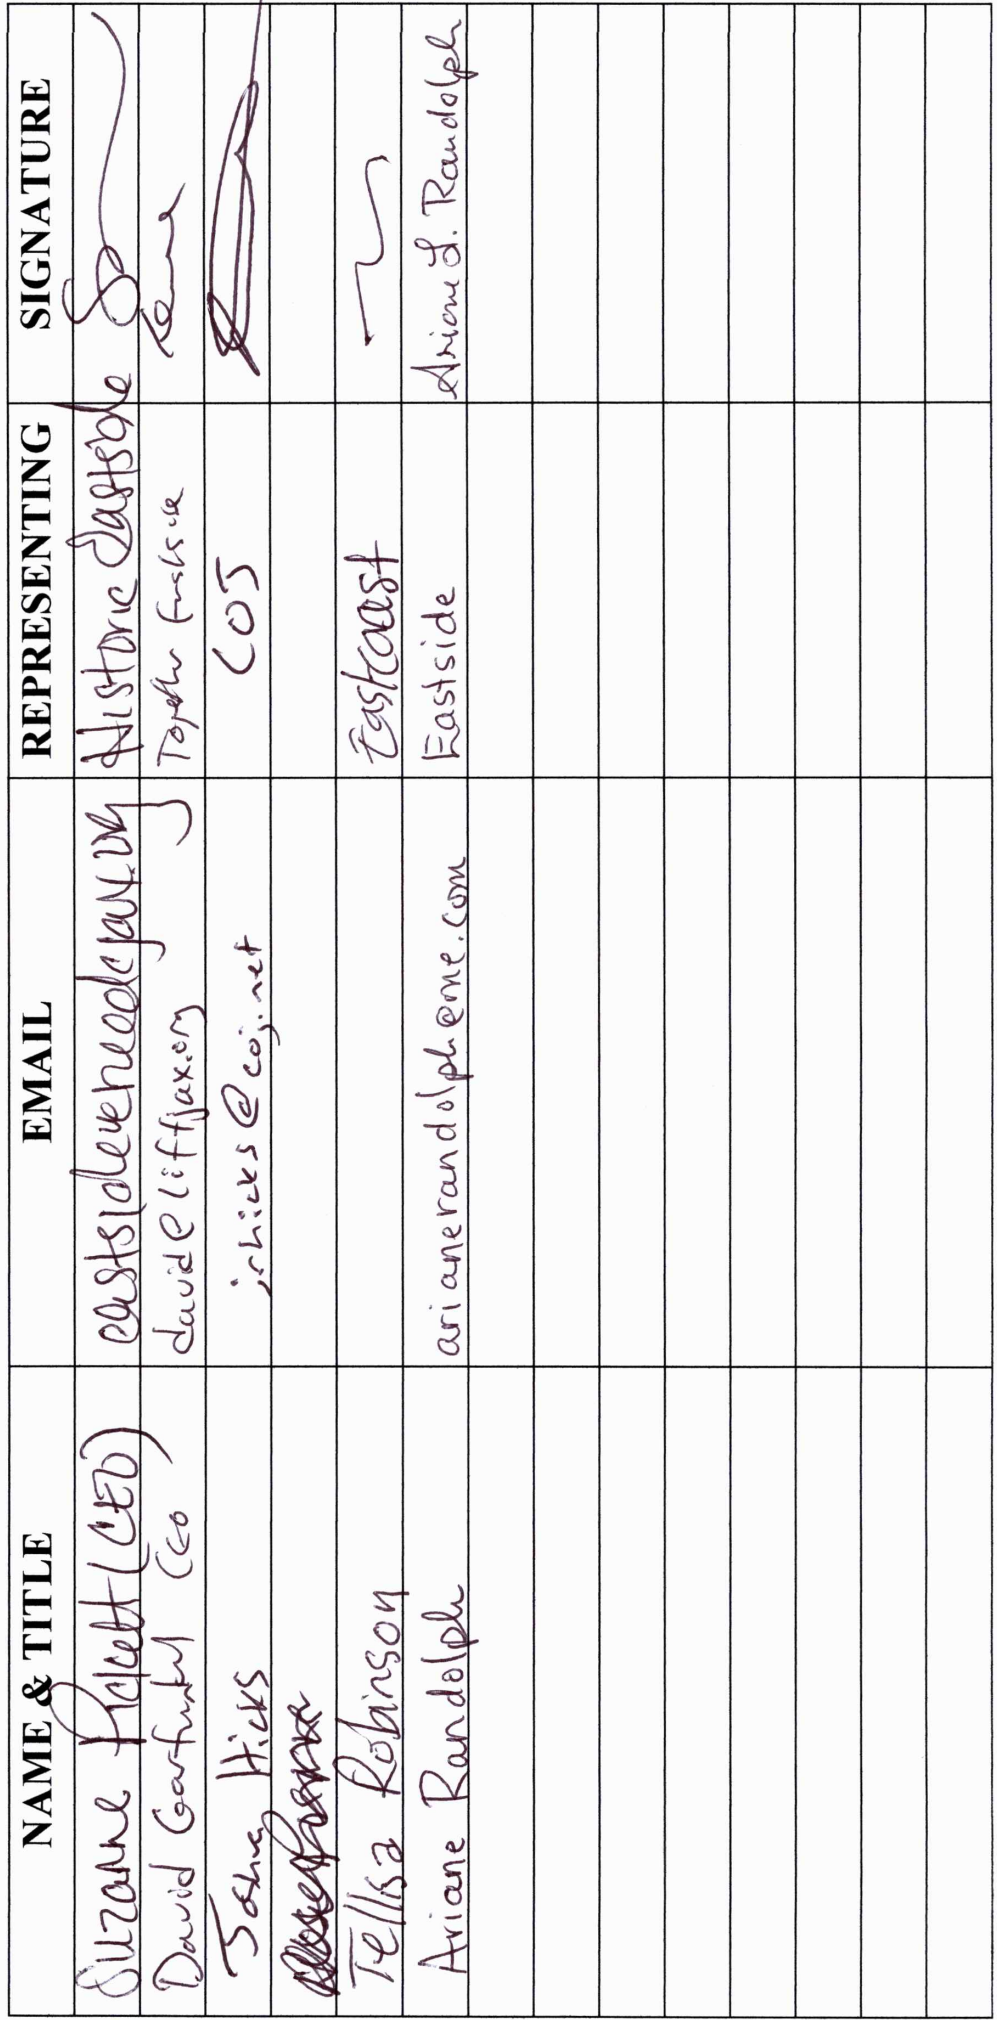 NAME & TITLE EMAIL REPRESENTING SIGNATURE
Suzanne Pickett (CEO) Historic Eastside
David Garfunkel CEO david@liftjax.org Together Eastside
Joshua Hicks jrhicks@coj.net COJ
Tellisa Robinson Eastcoast
Ariane Randolph arianerandolph@me.com Eastside Ariane L. Randolph